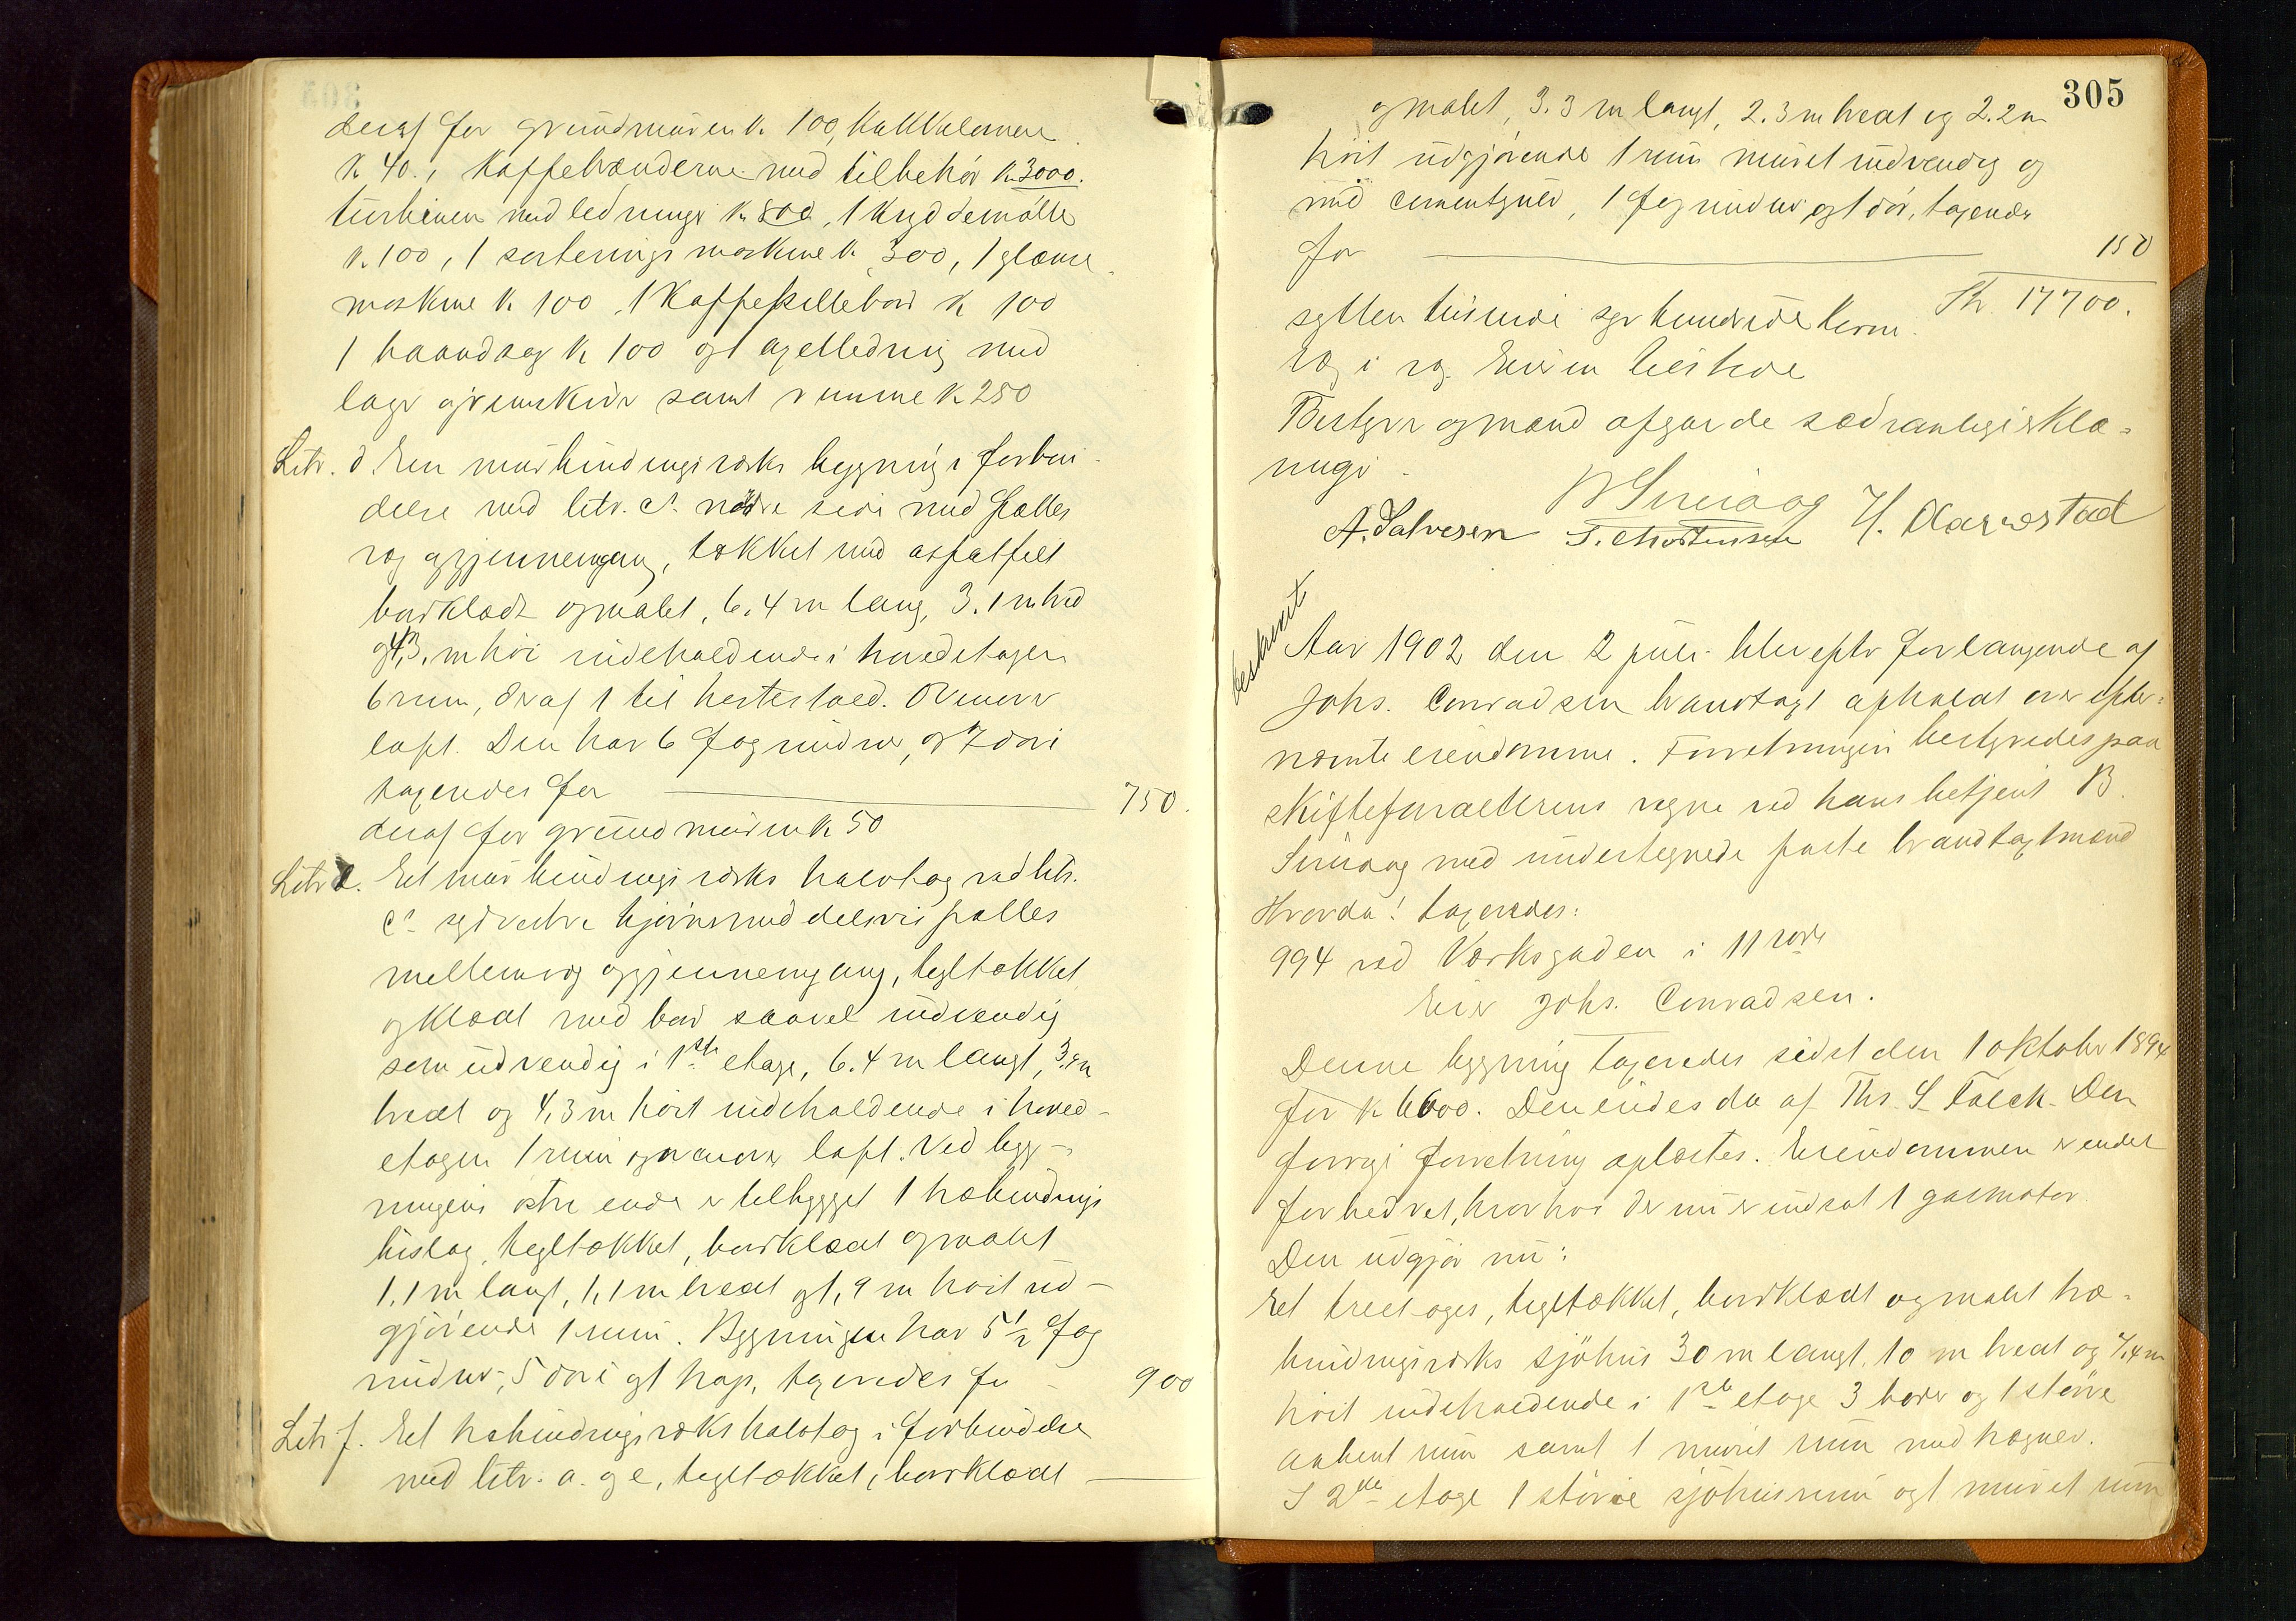 deraf for grundmuren k. 100, Kakkelovnene
k 40., Kaffebrænderne med tilbehör k. 3000.
turbinen med ledninger k. 800, 1 Kryddemölle
k. 100, 1 sorterings maskine k. 300, 1 glanse
maskine k 100, 1 Kaffepillebord k 100
1 baandsag k 100 og 1 axelledning med
lager og remskiver samt remme k 250
Litr. d. En murbindingsværks bygning i forbin-
delse med litr. c's nordre side med fælles
væg og gjennemgang, tækket med asfaltfilt
bordklædt og malet, 6.4 m lang, 3.1 m bred
og 4,3. m höi indeholdende i hovedetagen
6 rum, deraf 1 til hestestald. Ovenover
loft. Den har 6 fag vinduer, og 7 döre
taxeredes for 750.
deraf for grundmuren k 50
Litr e. Et murbindingsværks halvtag ved litr.
c's sydvestre hjörne med delevis fælles
mellemvæg og gjennemgang, tegltækket
og klædt med bord saavel indvendig
som udvendig i 1ste etage, 6.4 m langt,
bredt og 4,3 m höit indeholdende i hoved-
etagen 1 rum og ovenover loft. Ved byg-
ningens östre ende er tilbygget 1 træbindings
bislag, tegltækket, bordklædt og malet
1,1 m langt, 1,1 m bredt og 1,9 m höit ud-
gjörende 1 rum. Bygningen har 5 1/2 fag
vinduer, 5 döre og 1 trap, taxeredes for 900
Litr f. Et træbindingsværks halvtag i forbindelse
med litr. a. og e, tegltækket, bordklædt
305
og malet, 3.3 m langt, 2.3 m bredt og 2.2 m
höit udgjörende 1 rum muret indvendig og
med cementgulv, 1 fag vinduer og 1 dör, taxeredes
for 150
Kr. 17700.
sytten tusinde syv hundrede kroner.
Eieren tilstede
Bestyrer og mænd afgav de sædvanlige erklæ-
ringer.
A. Salvesen S. Mortensen
beskrevet
Aar 1902 den 2 juli blev efter forlangende af
Johs. Conradsen brandtaxt afholdt over efter-
nævnte eiendomme. Forretningen bestyredes paa
skifteforvalterens vegne ved hans betjent B.
med undertegnede faste brandtaxtmænd
Hvorda! taxeredes:
994 ved Værksgaden i 11 rode
Eier Johs. Conradsen.
Denne bygning taxeredes sidst den 1 oktober 1894
for k 6600. Den eiedes da af Ths. S. Falck. Den
forrige forretning oplæstes. Eiendommen er endel
forbedret, hvorhos der nu er indsat 1 gasmotor
Den udgjör nu:
Et treetages, tegltækket, bordklædt og malet træ-
bindingsværks sjöhus 30 m langt, 10 m bredt og 7.4 m
höit indeholdende i 1ste etage 3 boder og 1 större
aabent rum samt 1 muret rum med trægulv.
I 2de etage 1 större sjöhusrum og 1 muret rum